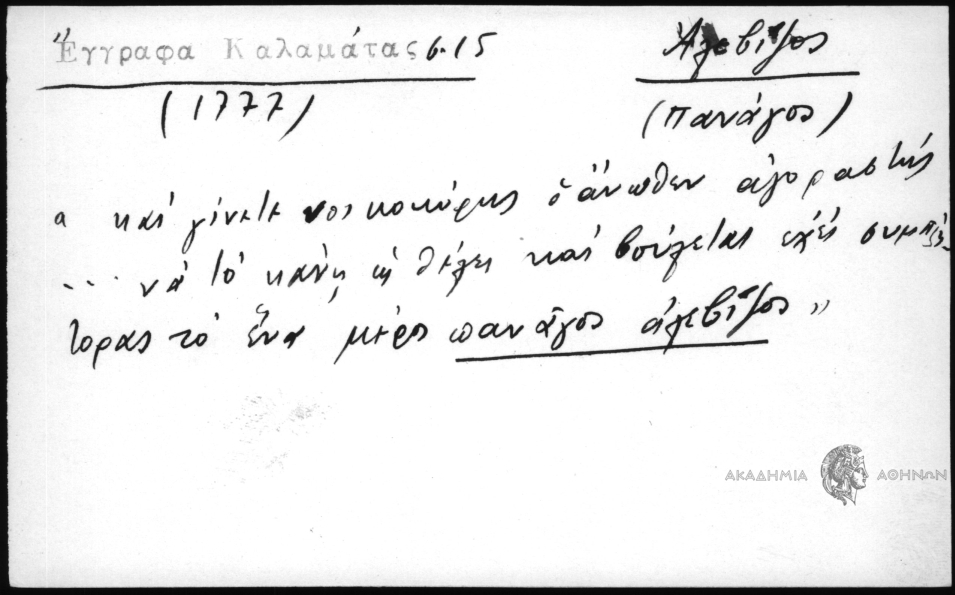 Ἔγγραφα Καλαμάτας σ. 15
Ἀλεβίζος
(1777)
(Πανάγος)
" καί γίνεται νοικοκύρης ὁ ἄνωθεν ἀγοραστής
... νά τό κάνῃ ὡς θέλει καί βούλεται ἐχει συμπλη-
τορας τό ἕνα μέρος πανάγος ἀλεβίζος "
ΑΚΑΔΗΜΙΑ ΑΘΗΝΩΝ